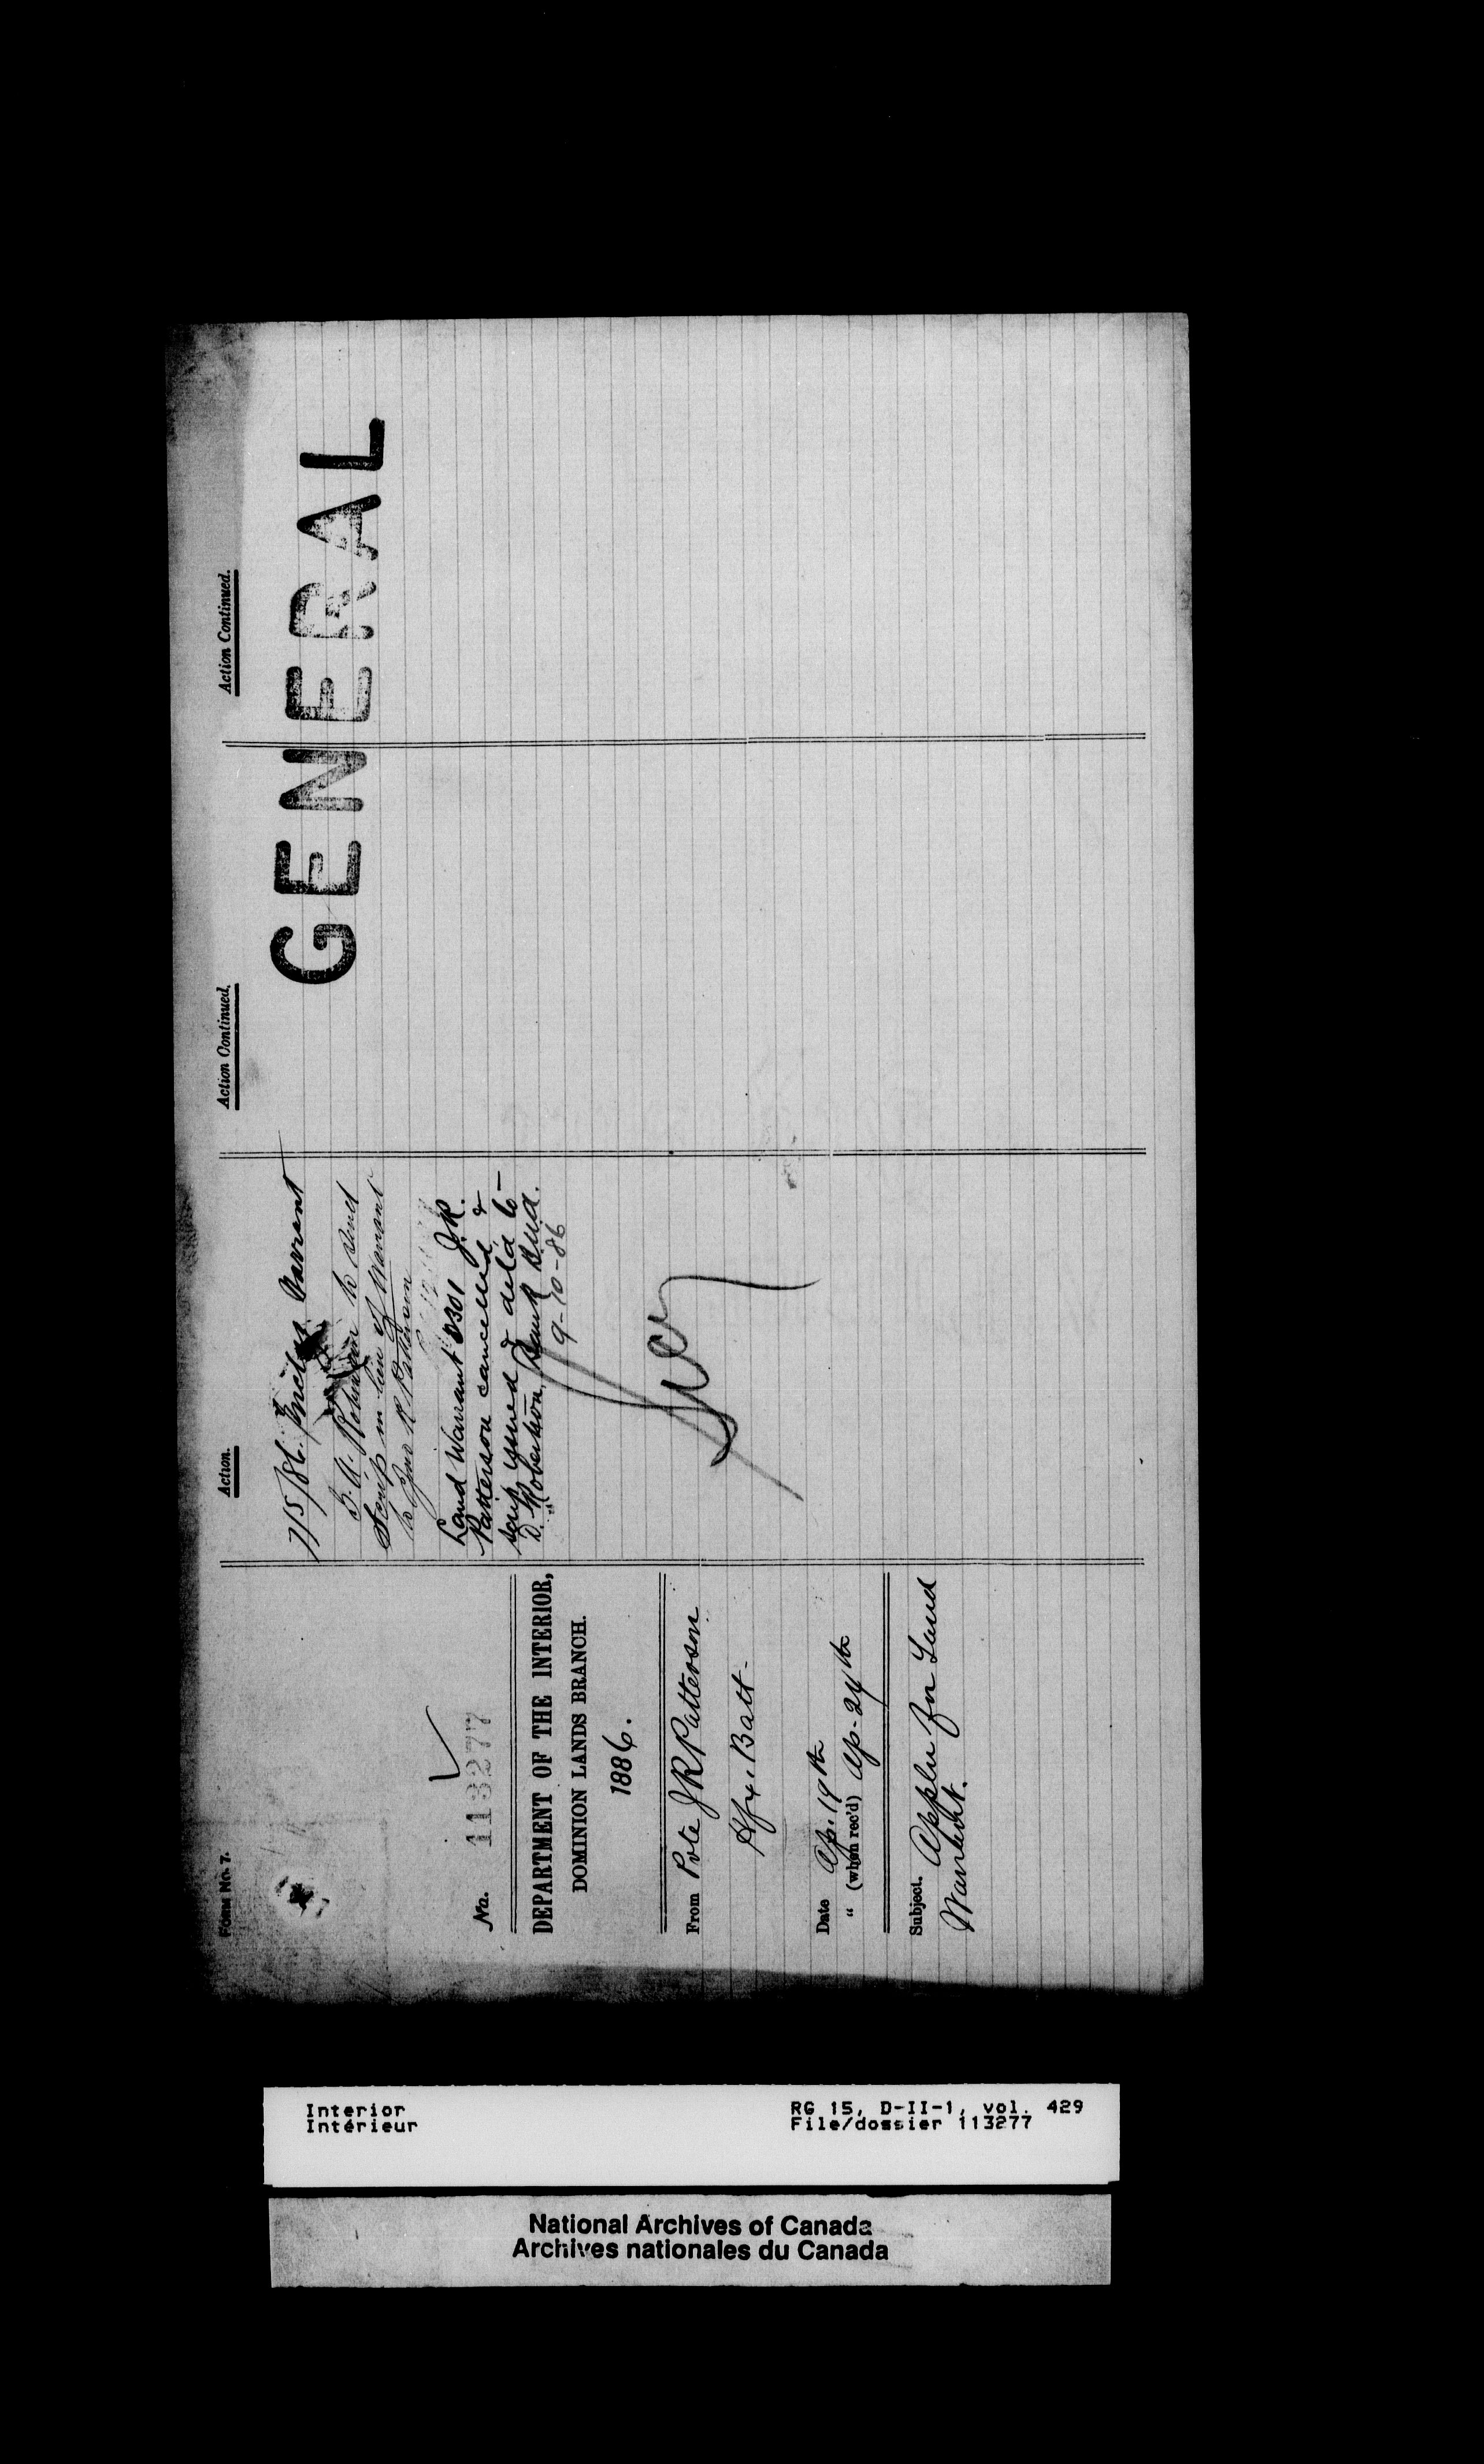 FORM No. 7.
No. 113277
DEPARTMENT OF THE INTERIOR,
DOMINION LANDS BRANCH.
1886.
From Pvte J R Patterson
Hfx. Batt-
Date Ap. 19th
" (when rec'd) Ap. 24th
Subject. Appln for Land
Warrant.
Action.
7/5/86. Enclos Warrant
to send
Scrip in lieu of Warrant
to Jno R Patterson
Land Warrant 0301 J.R.
Patterson cancelled &
scrip issued & deld to
D. Robertson, Bank
9-10-86
Action Continued.
Action Continued.
GENERAL
Interior
Intérieur
RG 15, D-II-1, vol. 429
File/dossier 113277
National Archives of Canada
Archives nationales du Canada